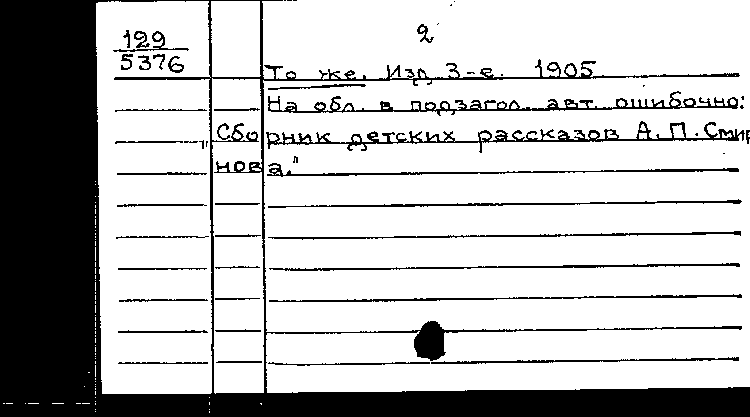 2
129
5376
То же. Изд. 3-е. 1905
На обл. в подзагол. авт. ошибочно:
"Сборник детских рассказов А. П. Смир
нова."